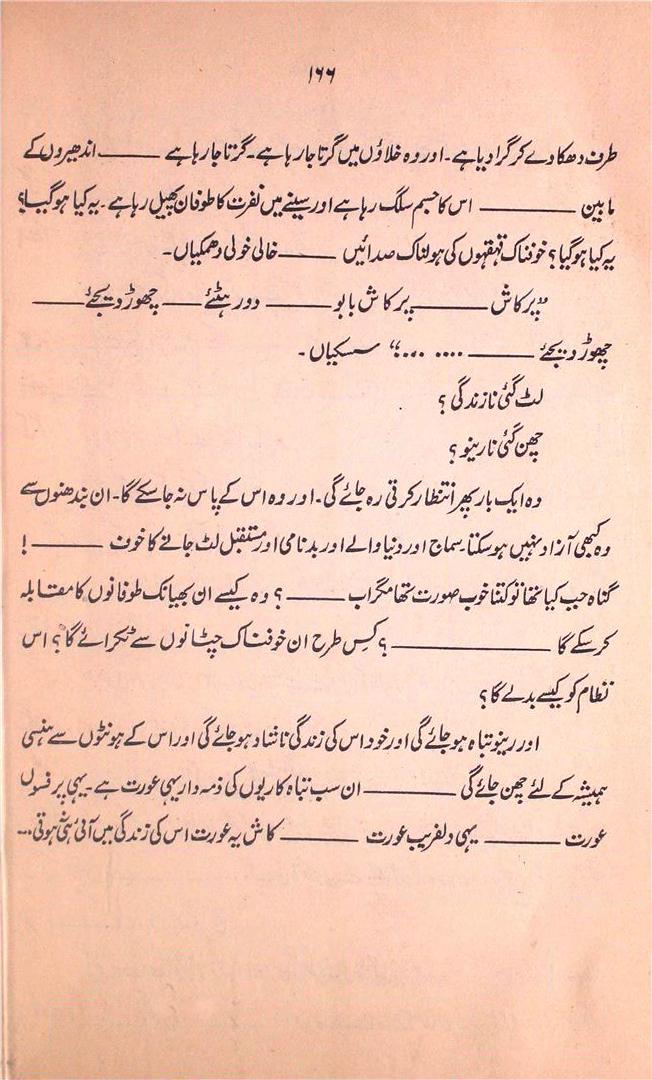 ۱۶۶
طرف دھکا دے کر گرا دیا ہے۔ اور وہ خلاؤں میں گرتا جا رہا ہے۔ گرتا جا رہا ہے ——— اندھیروں کے
مابین ——— اس کا جسم سلگ رہا ہے اور سینے میں نفرت کا طوفان پھیل رہا ہے۔ یہ کیا ہو گیا؟
یہ کیا ہو گیا؟ خوفناک قہقہوں کی ہولناک صدائیں ——— خالی خولی دھمکیاں۔
”پرکاش ——— پرکاش بابو ——— دور ہٹئے ——— چھوڑ دیجئے ———
چھوڑ دیجئے ——— .... ....“ سسکیاں۔
لٹ گئی نا زندگی ؟
چھن گئی نا رینو ؟
وہ ایک بار پھر انتظار کرتی رہ جائے گی۔ اور وہ اس کے پاس نہ جا سکے گا۔ ان بندھنوں سے
وہ کبھی آزاد نہیں ہو سکتا۔ سماج اور دنیا والے اور بدنامی اور مستقبل لٹ جانے کا خوف ——— !
گناہ جب کیا تھا تو کتنا خوب صورت تھا مگر اب ——— ؟ وہ کیسے ان بھیانک طوفانوں کا مقابلہ
کر سکے گا ——— ؟ کس طرح ان خوفناک چٹانوں سے ٹکرائے گا؟ اس
نظام کو کیسے بدلے گا؟
اور رینو تباہ ہو جائے گی اور خود اس کی زندگی ناشاد ہو جائے گی اور اس کے ہونٹوں سے ہنسی
ہمیشہ کے لئے چھن جائے گی ——— ان سب تباہ کاریوں کی ذمہ دار یہی عورت ہے۔ یہی پر فسوں
عورت ——— یہی دلفریب عورت ——— کاش یہ عورت اس کی زندگی میں آئی ہی نہ ہوتی...